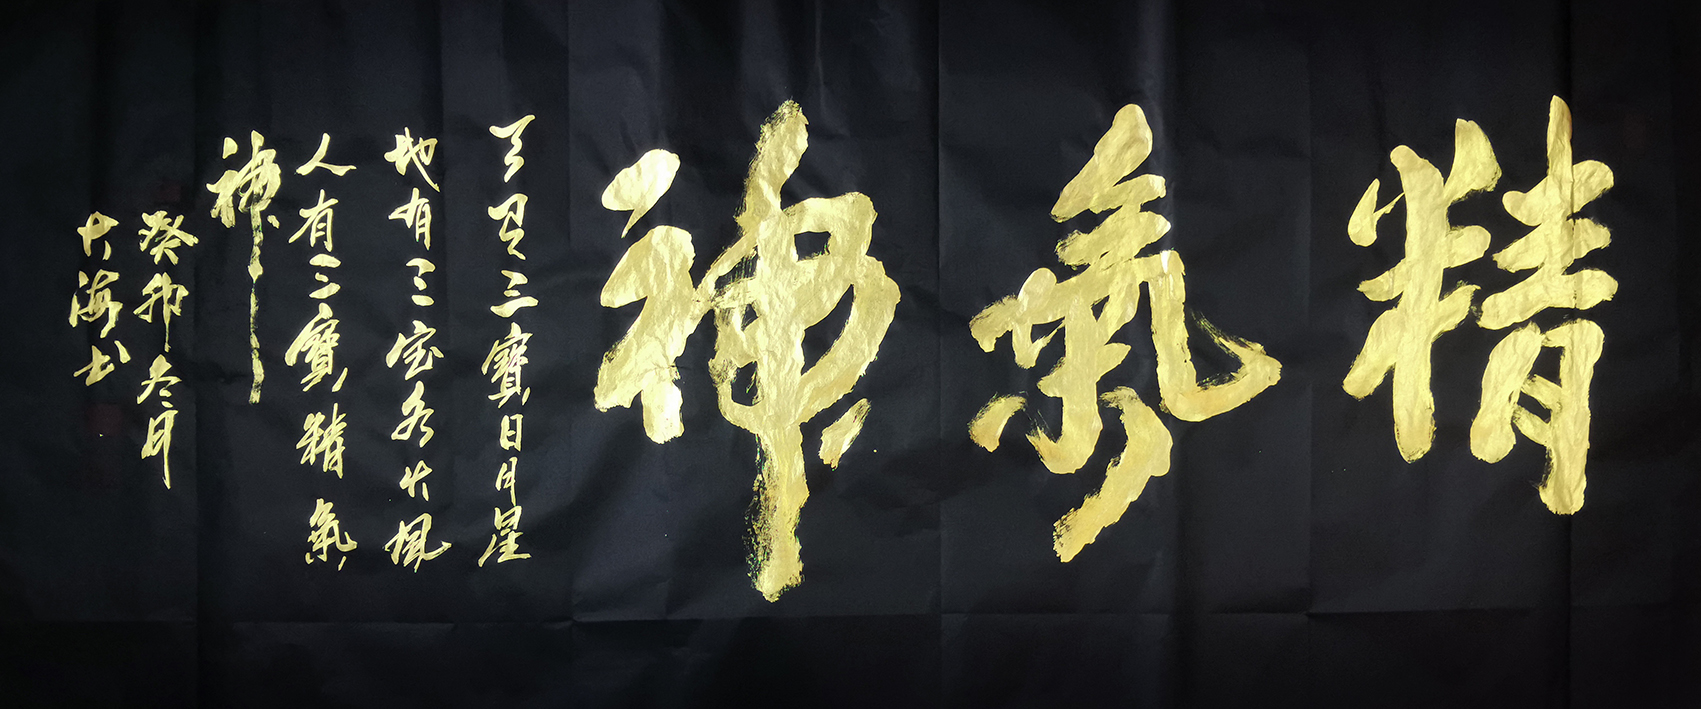 精氣神
天有三寶日月星
地有三宝水火風
人有三寶精氣
神
癸卯冬月
大海书